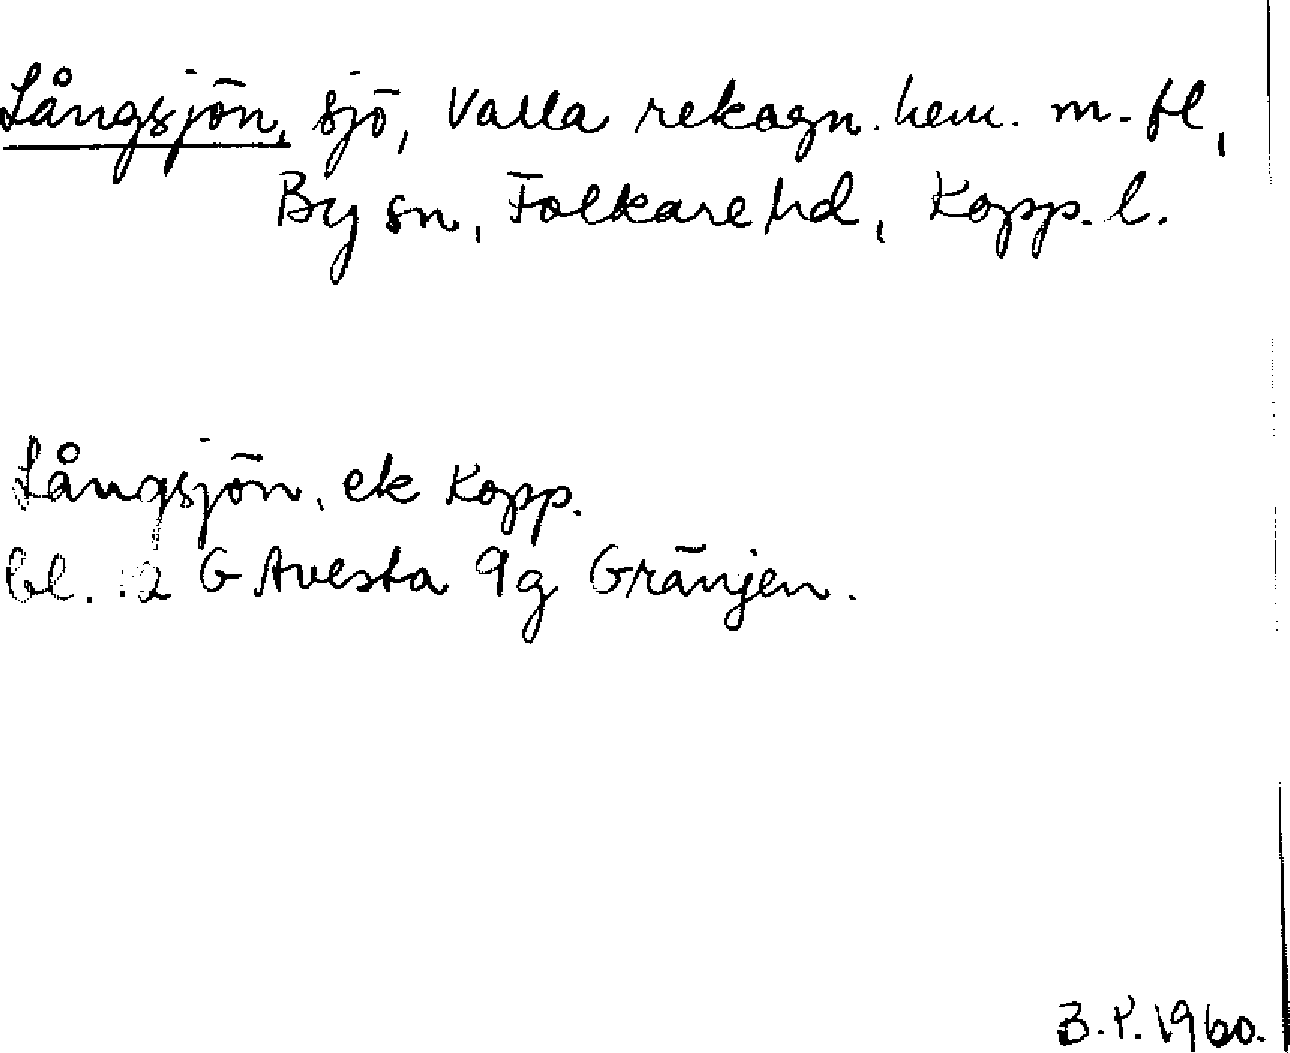 Långsjön, sjö, Valla rekogn. hem. m. fl,
By sn, Folkare hd, Kopp. l.
Långsjön, ek Kopp.
bl. 12 G Avesta 9g Gränjen.
B.P. 1960.